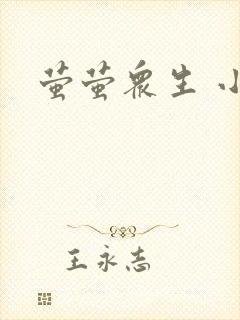 萤萤众生 小
王永志